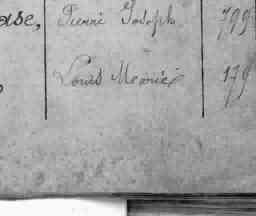 ase, Pierre Joseph 799
Louis Meorié 179